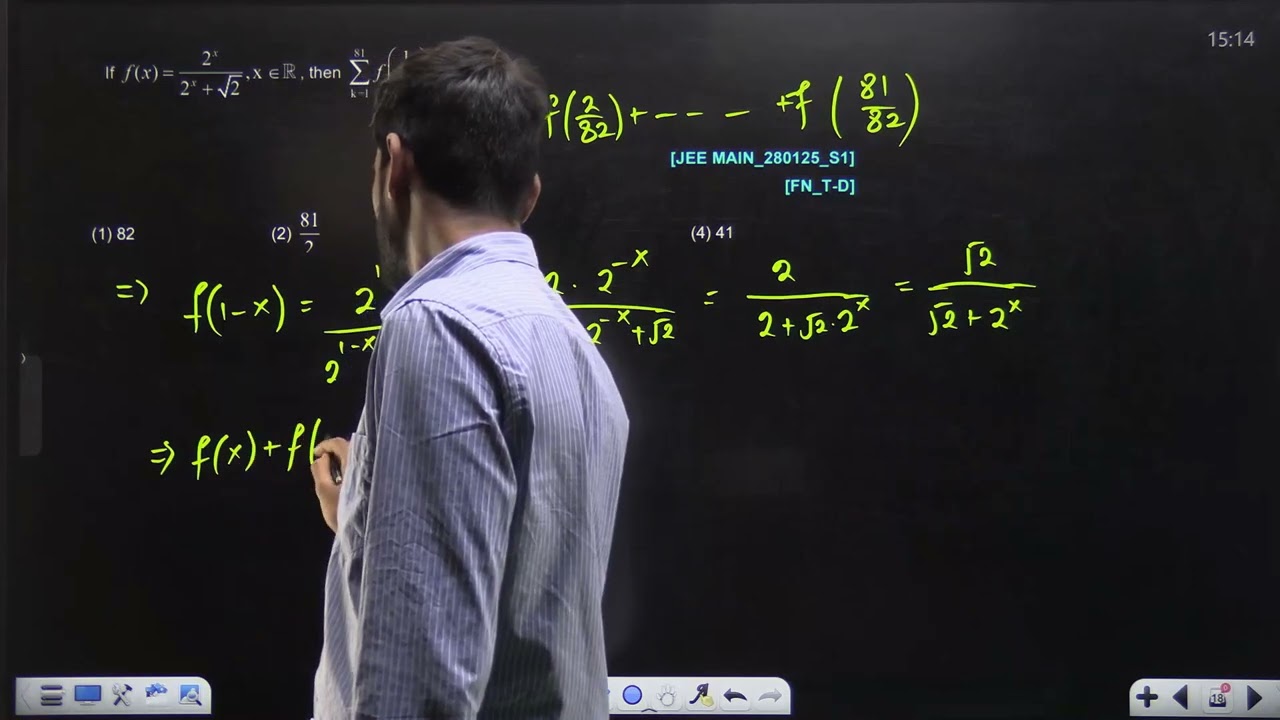 15:14
If f(x) = 2ˣ / (2ˣ + √2), x ∈ ℝ, then ∑_{k=1}^{81} f(
f(2/82) + - - - - + f(81/82)
[JEE MAIN_280125_S1]
[FN_T-D]
(1) 82 (2) 81/2 (4) 41
⇒ f(1-x) = 2 / 2^{1-x} 2 · 2^{-x} / 2^{-x} + √2 = 2 / (2 + √2 · 2ˣ) = √2 / (√2 + 2ˣ)
⇒ f(x) + f(
18